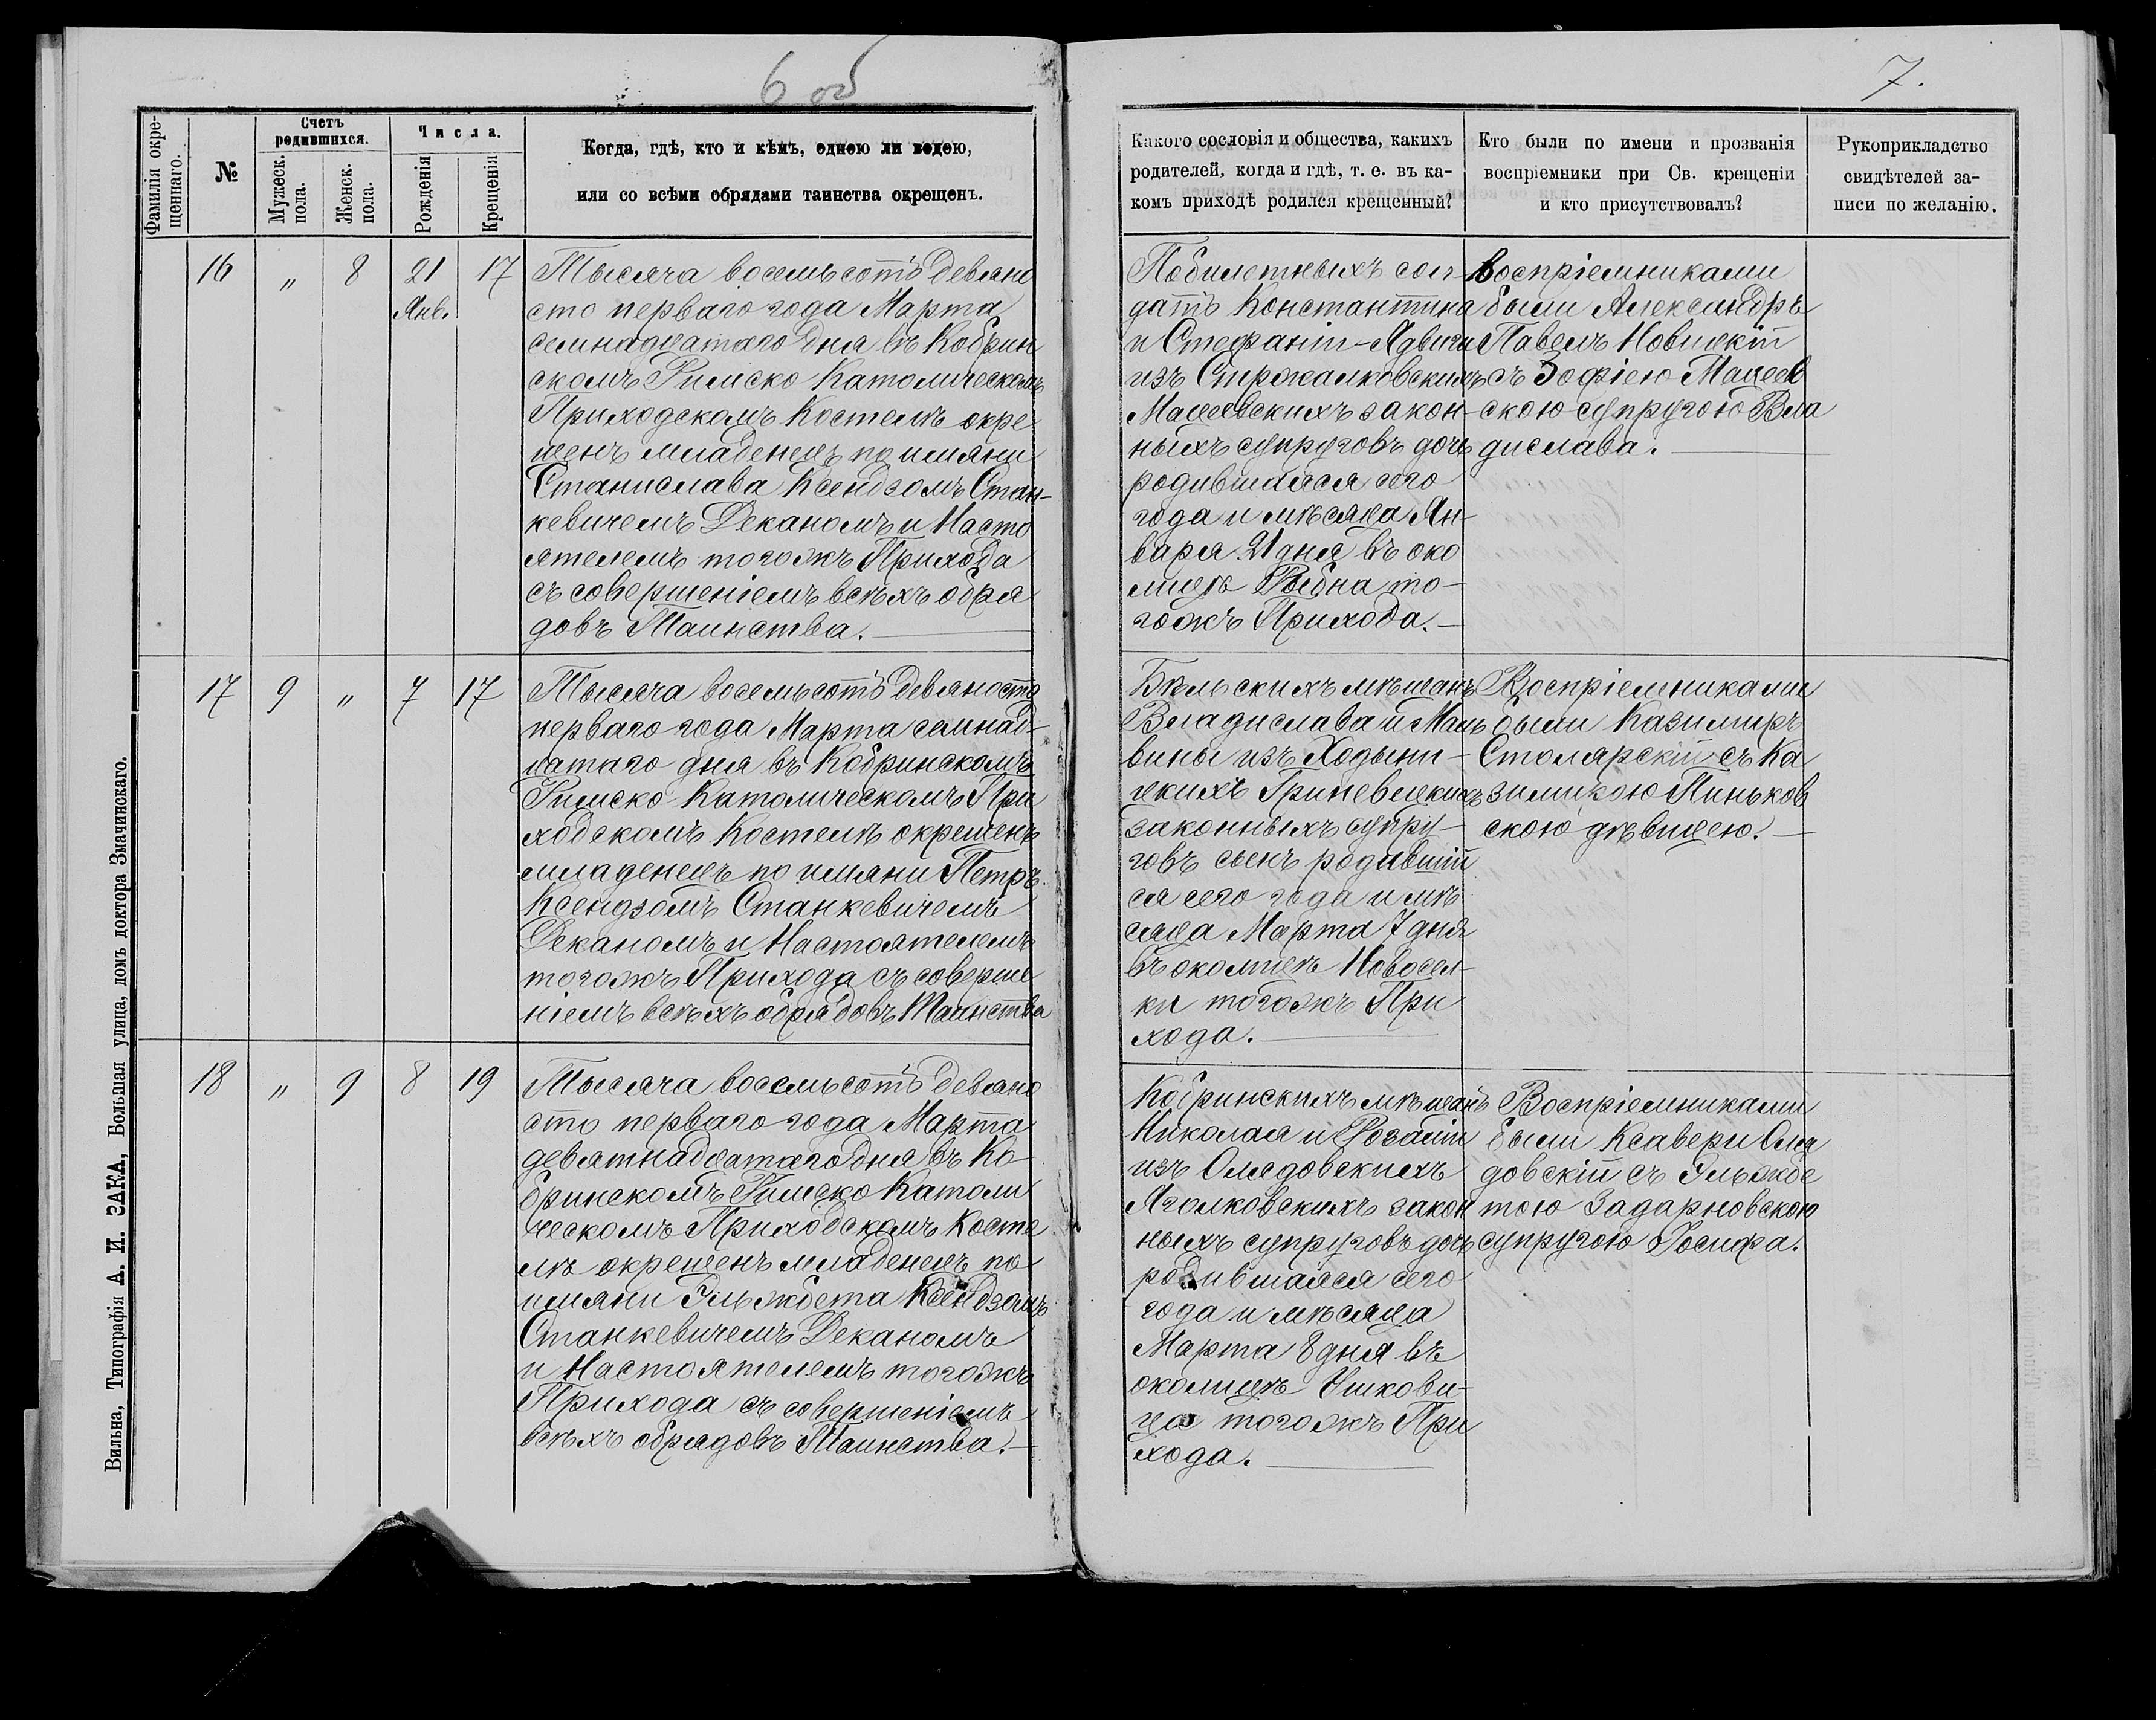 6 об
7.
Фамилія окре-
щеннаго.
№
Счетъ
родившихся.
Мужеск.
пола.
Женск.
пола.
Числа.
Рожденія
Крещенія
Когда, гдѣ, кто и кѣмъ, одною ли водою,
или со всѣми обрядами таинства окрещенъ.
Какого сословія и общества, какихъ
родителей, когда и гдѣ, т. е. въ ка-
комъ приходѣ родился крещенный?
Кто были по имени и прозванія
воспріемники при Св. крещеніи
и кто присутствовалъ?
Рукоприкладство
свидѣтелей за-
писи по желанію.
16 " 8 21 17
Янв.
Тысяча восемьсотъ девяно
сто перваго года Марта
семнадцатаго дня въ Кобрин
скомъ Римско Католическомъ
Приходскомъ Костелѣ окре
щенъ младенецъ по имяни
Станислава Ксендзомъ Стан-
кевичемъ Деканомъ и Насто
ятелемъ тогожъ Прихода
съ совершеніемъ всѣхъ обря
довъ Таинства.
Побилетныхъ сол-
датъ Константина
и Стефаніи-Ядвиги
изъ Стржалковскихъ
Мацеевскихъ закон-
ныхъ супруговъ дочь
родившаяся сего
года и мѣсяца Ян-
варя 21 дня въ око
лицѣ Рыбна то-
гожъ Прихода.
Воспріемниками
были Александръ
Павелъ Новицкій
съ Зофіею Мацеев
скою супругою Вла
дислава.
17 9 " 7 17
Тысяча восемьсотъ девяносто
перваго года Марта семнад-
цатаго дня въ Кобринскомъ
Римско Католическомъ При
ходскомъ Костелѣ окрещенъ
младенецъ по имяни Петръ
Ксендзомъ Станкевичемъ
Деканомъ и Настоятелемъ
тогожъ Прихода съ соверше
ніемъ всѣхъ обрядовъ Таинства
Бѣльскихъ мѣщанъ
Владислава и Маль
вины изъ Ходыни-
цкихъ Гриневицкихъ
законныхъ супру-
говъ сынъ родивший
ся сего года и мѣ
сяца Марта 7 дня
въ околицѣ Новосел-
ки тогожъ При
хода.
Воспріемниками
были Казимиръ
Столярскій съ Ка
зимирою Пиньков
скою дѣвицею.
18 " 9 8 19
Тысяча восемьсотъ девяно
сто перваго года Марта
девятнадцатаго дня въ Ко-
бринскомъ Римско Католи
ческомъ Приходскомъ Косте
лѣ окрещенъ младенецъ по
имяни Эльжбета Ксендзомъ
Станкевичемъ Деканомъ
и Настоятелемъ тогожъ
Прихода съ совершеніемъ
всѣхъ обрядовъ Таинства.
Кобринскихъ мѣщанъ
Николая и Розаліи
изъ Олядовскихъ
Яголковскихъ закон
ныхъ супруговъ дочь
родившаяся сего
года и мѣсяца
Марта 8 дня въ
околицѣ Ушкови-
ца тогожъ При
хода.
Воспріемниками
были Ксавери Оля
довскій съ Эльжбе
тою Задарновскою
супругою Іосифа.
Вильна, Типографія А. И. ЗАКА, Большая улица, домъ доктора Змачинскаго.